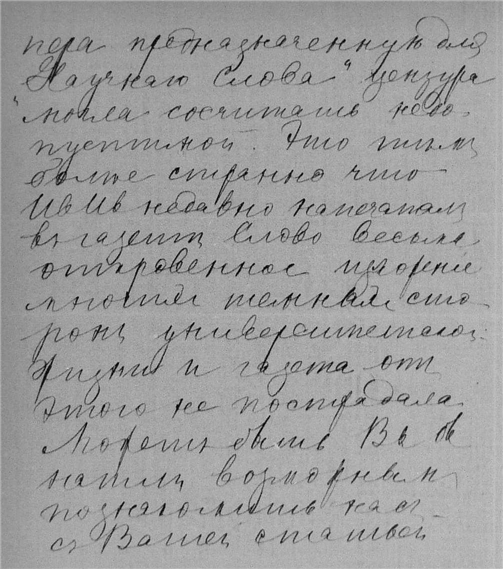 пера предназначенную для
Научнаго Слова" цензура
"могла сосчитать недо-
пустимой. Это тѣмъ
более странно что
ИвИв недавно напечаталъ
въ газетѣ Слово весьма
откровенное
многихъ темныхъ сто-
ронъ университетской
жизни и газета отъ
этого не пострадала
Можетъ быть Вы бы
нашли возможнымъ
познакомить насъ
съ Вашей статьей